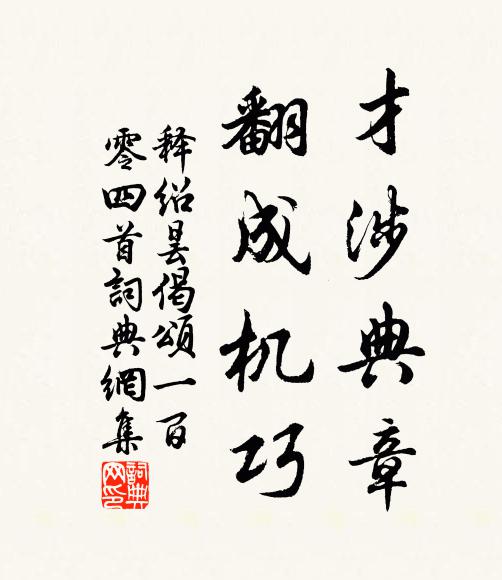 才涉典章
翻成机巧
释绍昙偈颂一百
零四首詞典網集
詞典
网印